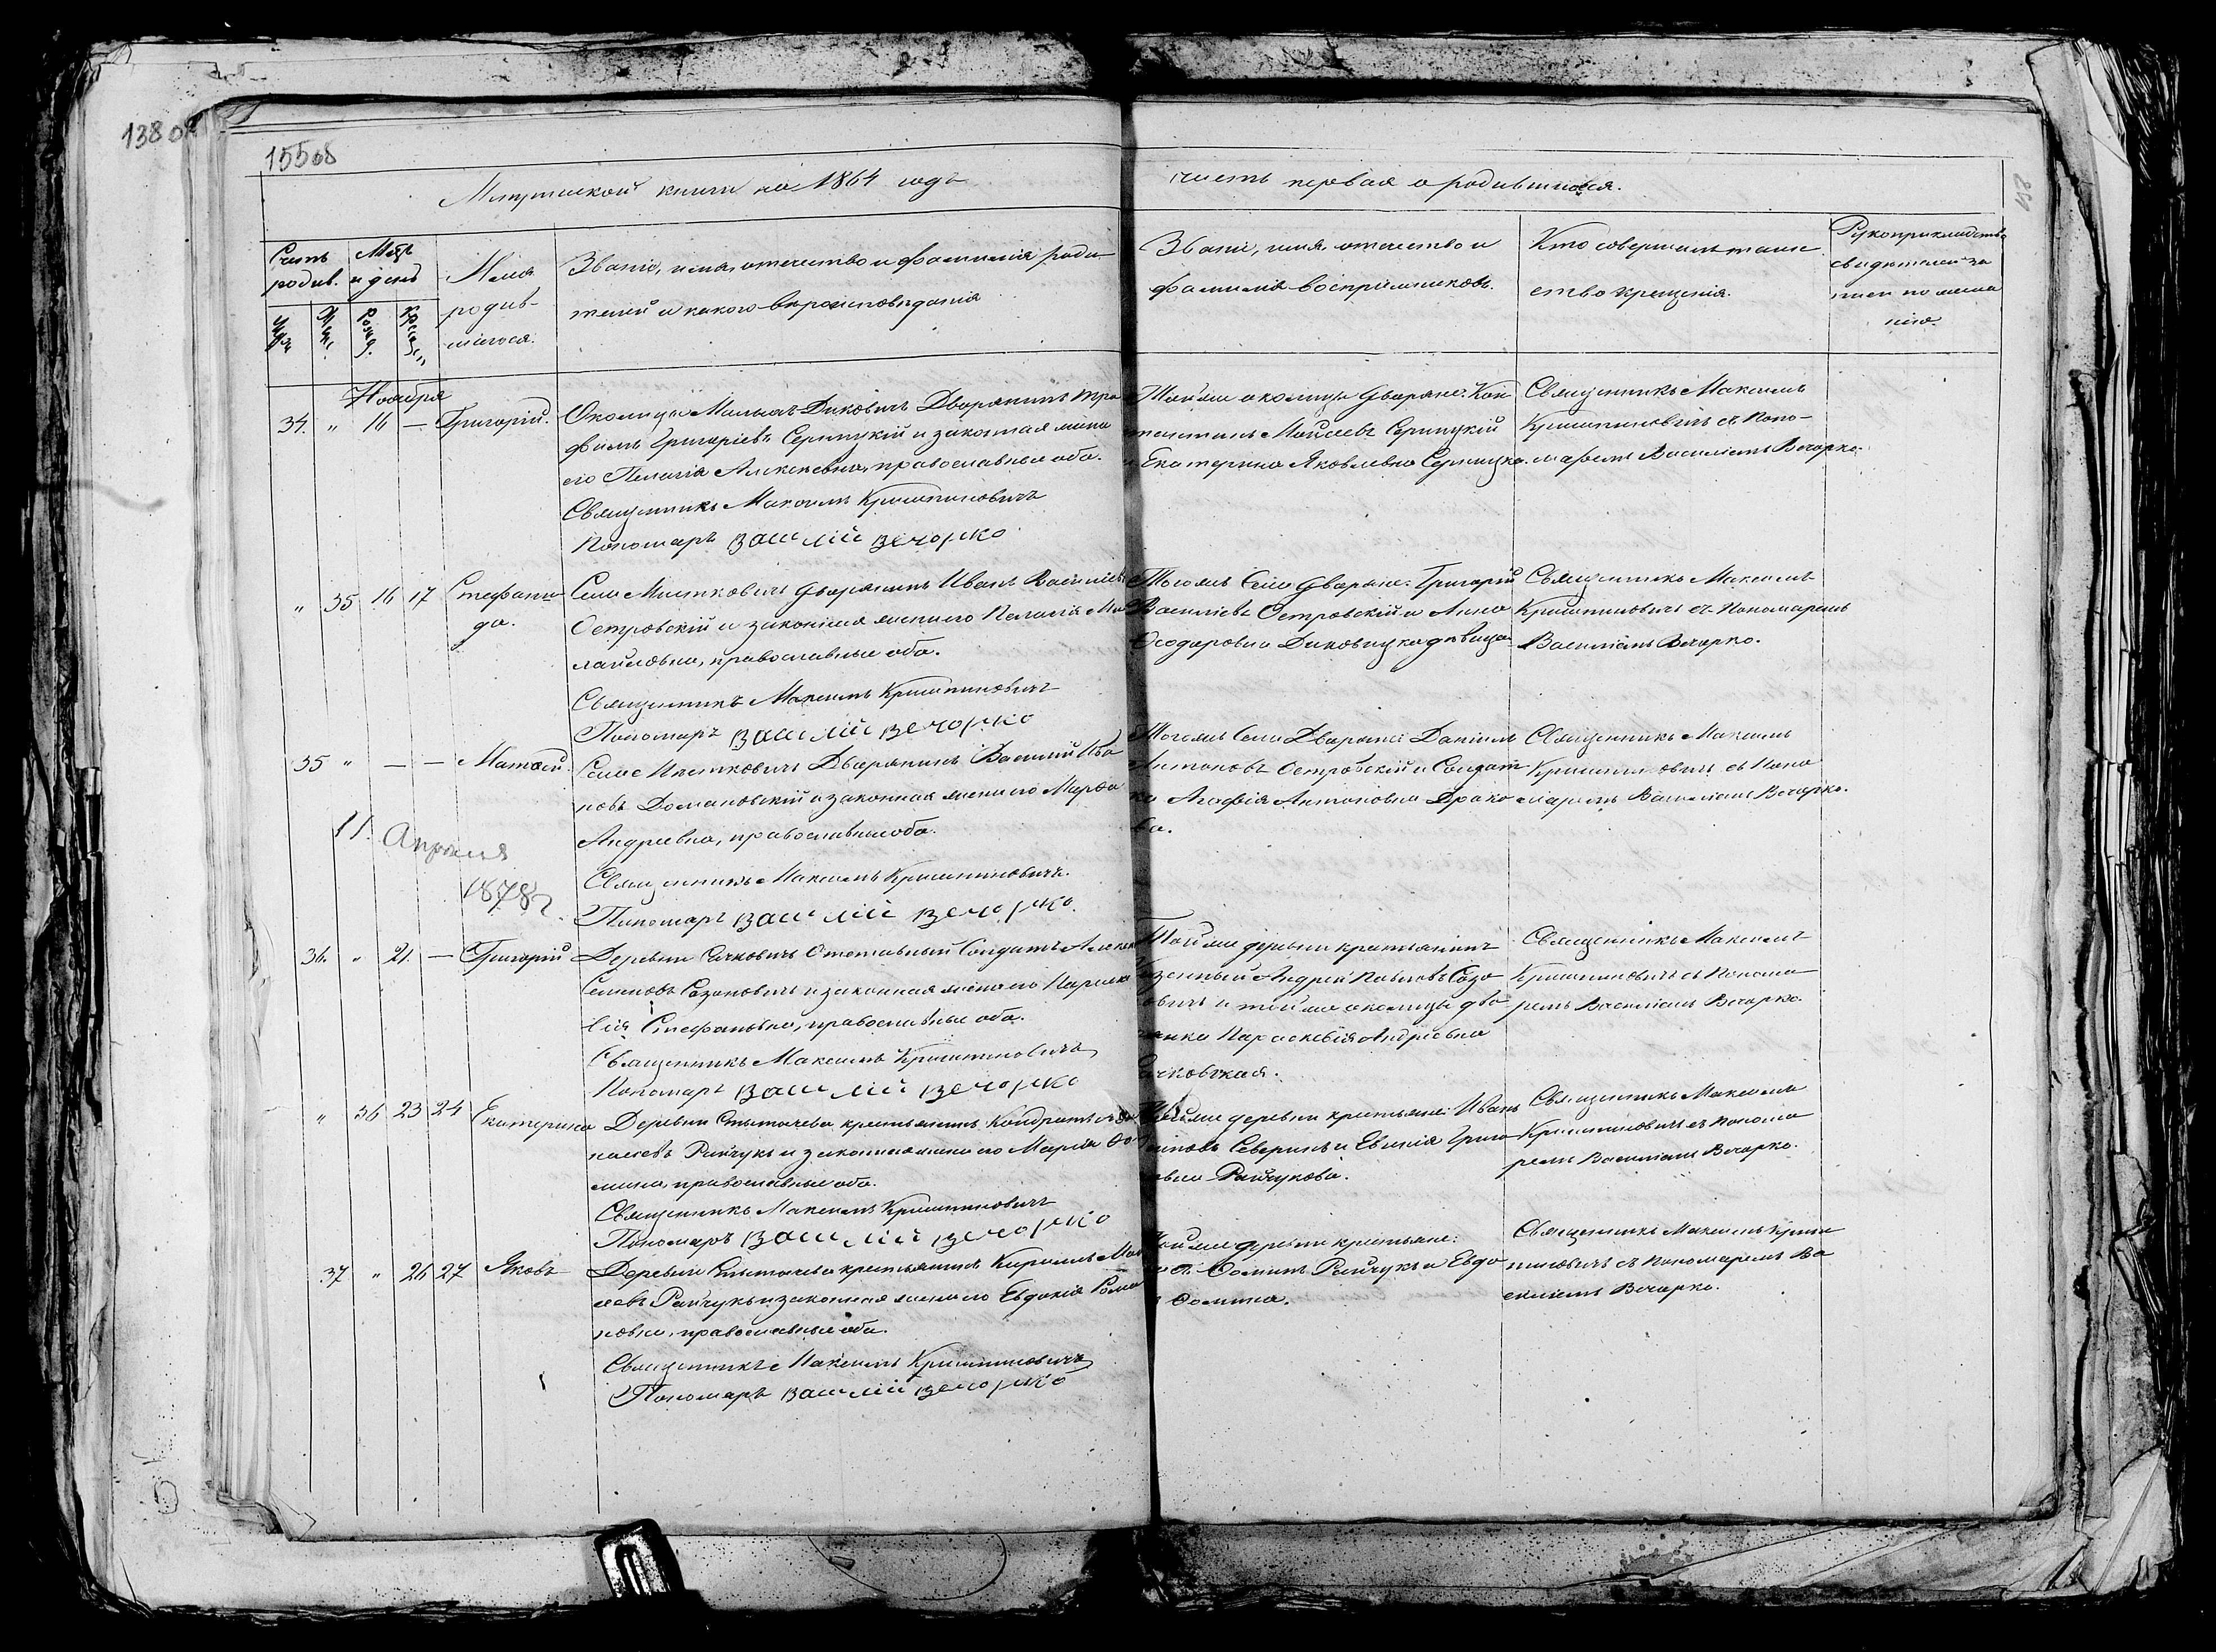 138 об
155 об
Метрической книги на 1864 годъ
часть первая о родившихся.
Счетъ родив.
Мѣс. и день
Муж.
Жен.
Рожд.
Крещ.
Имя
родив-
шагося.
Званіе, имя, отчество и фамилія роди-
телей и какого вѣроисповѣданія
Званіе, имя, отчество и
фамилія воспріемниковъ.
Кто совершалъ таин
ство крещенія.
Рукоприкладство
свидѣтелей за
писи по жела
нію.
Ноября
34. " 16 — Григорій.
Околицы Малыхъ Диковичъ Дворянинъ Тро
фимъ Григоріевъ Серницкій и законная жена
его Пелагія Алексѣевна, православные оба.
Священникъ Максимъ Криштиновичъ
Пономарь Василій Вечорко
Той же околицы дворяне: Кон
стантинъ Моисеевъ Серницкій
и Екатерина Яковлевна Серницка.
Священникъ Максимъ
Криштиновичъ съ Поно-
маремъ Василіемъ Вечорко.
" 35 16 17 Стефани
да.
Села Местковичъ дворянинъ Иванъ Василіевъ
Островскій и законная жена его Пелагія Ми
хайловна, православные оба.
Священникъ Максимъ Криштиновичъ
Пономарь Василій Вечорко
Тогожъ Села дворяне: Григорій
Василіевъ Островскій и Анна
Ѳеодоровна Диковицка дѣвица
Священникъ Максимъ
Криштиновичъ съ Пономаремъ
Василіемъ Вечорко.
35 " — — Матѳей.
Села Местковичъ Дворянинъ Василій Ива
новъ Домановскій и законная жена его Марѳа
Андреевна, православные оба.
Священникъ Максимъ Криштиновичъ.
Пономарь Василій Вечорко.
11. Апреля
1878 г.
Тогожъ Села Дворяне: Даніилъ
Антоновъ Островскій и Солдат
ка Агафія Антоновна Драко
ва.
Священникъ Максимъ
Криштиновичъ съ Поно
маремъ Василіемъ Вечорко.
36. " 21. — Григорій
Деревни Сачковичъ Отставный Солдатъ Алексѣй
Семеновъ Сазановичъ и законная жена его Параске
вія Стефановна, православные оба.
Священникъ Максимъ Криштиновичъ
Пономарь Василій Вечорко
Той же деревни крестьянинъ
казенный Андрей Павловъ Саза
овичъ и той же околицы дво
янка Параскевія Андреевна
ачковская.
Священникъ Максимъ
Криштиновичъ съ Понома
ремъ Василіемъ Вечорко.
" 36 23 24 Екатерина
Деревни Стытычева крестьянинъ Кондратъ
насіевъ Райчукъ и законная жена его Марія Ѳо
мина, православные оба.
Священникъ Максимъ Криштиновичъ
Пономарь Василій Вечорко
Той же деревни крестьяне: Иванъ
Северинъ и Евгенія Григо
евна Райчукова.
Священникъ Максимъ
Криштиновичъ съ Понома
ремъ Василіемъ Вечорко.
37 " 26 27 Яковъ
Деревни Стытычева крестьянинъ Кириллъ
Райчукъ и законная жена его Евдокія Рома
новна, православные оба.
Священникъ Максимъ Криштиновичъ
Пономарь Василій Вечорко
Той же деревни крестьяне:
Ѳоминъ Райчукъ и Евдо
Ѳомина.
Священникъ Максимъ Кришти
новичъ съ Пономаремъ Ва
силіемъ Вечорко.